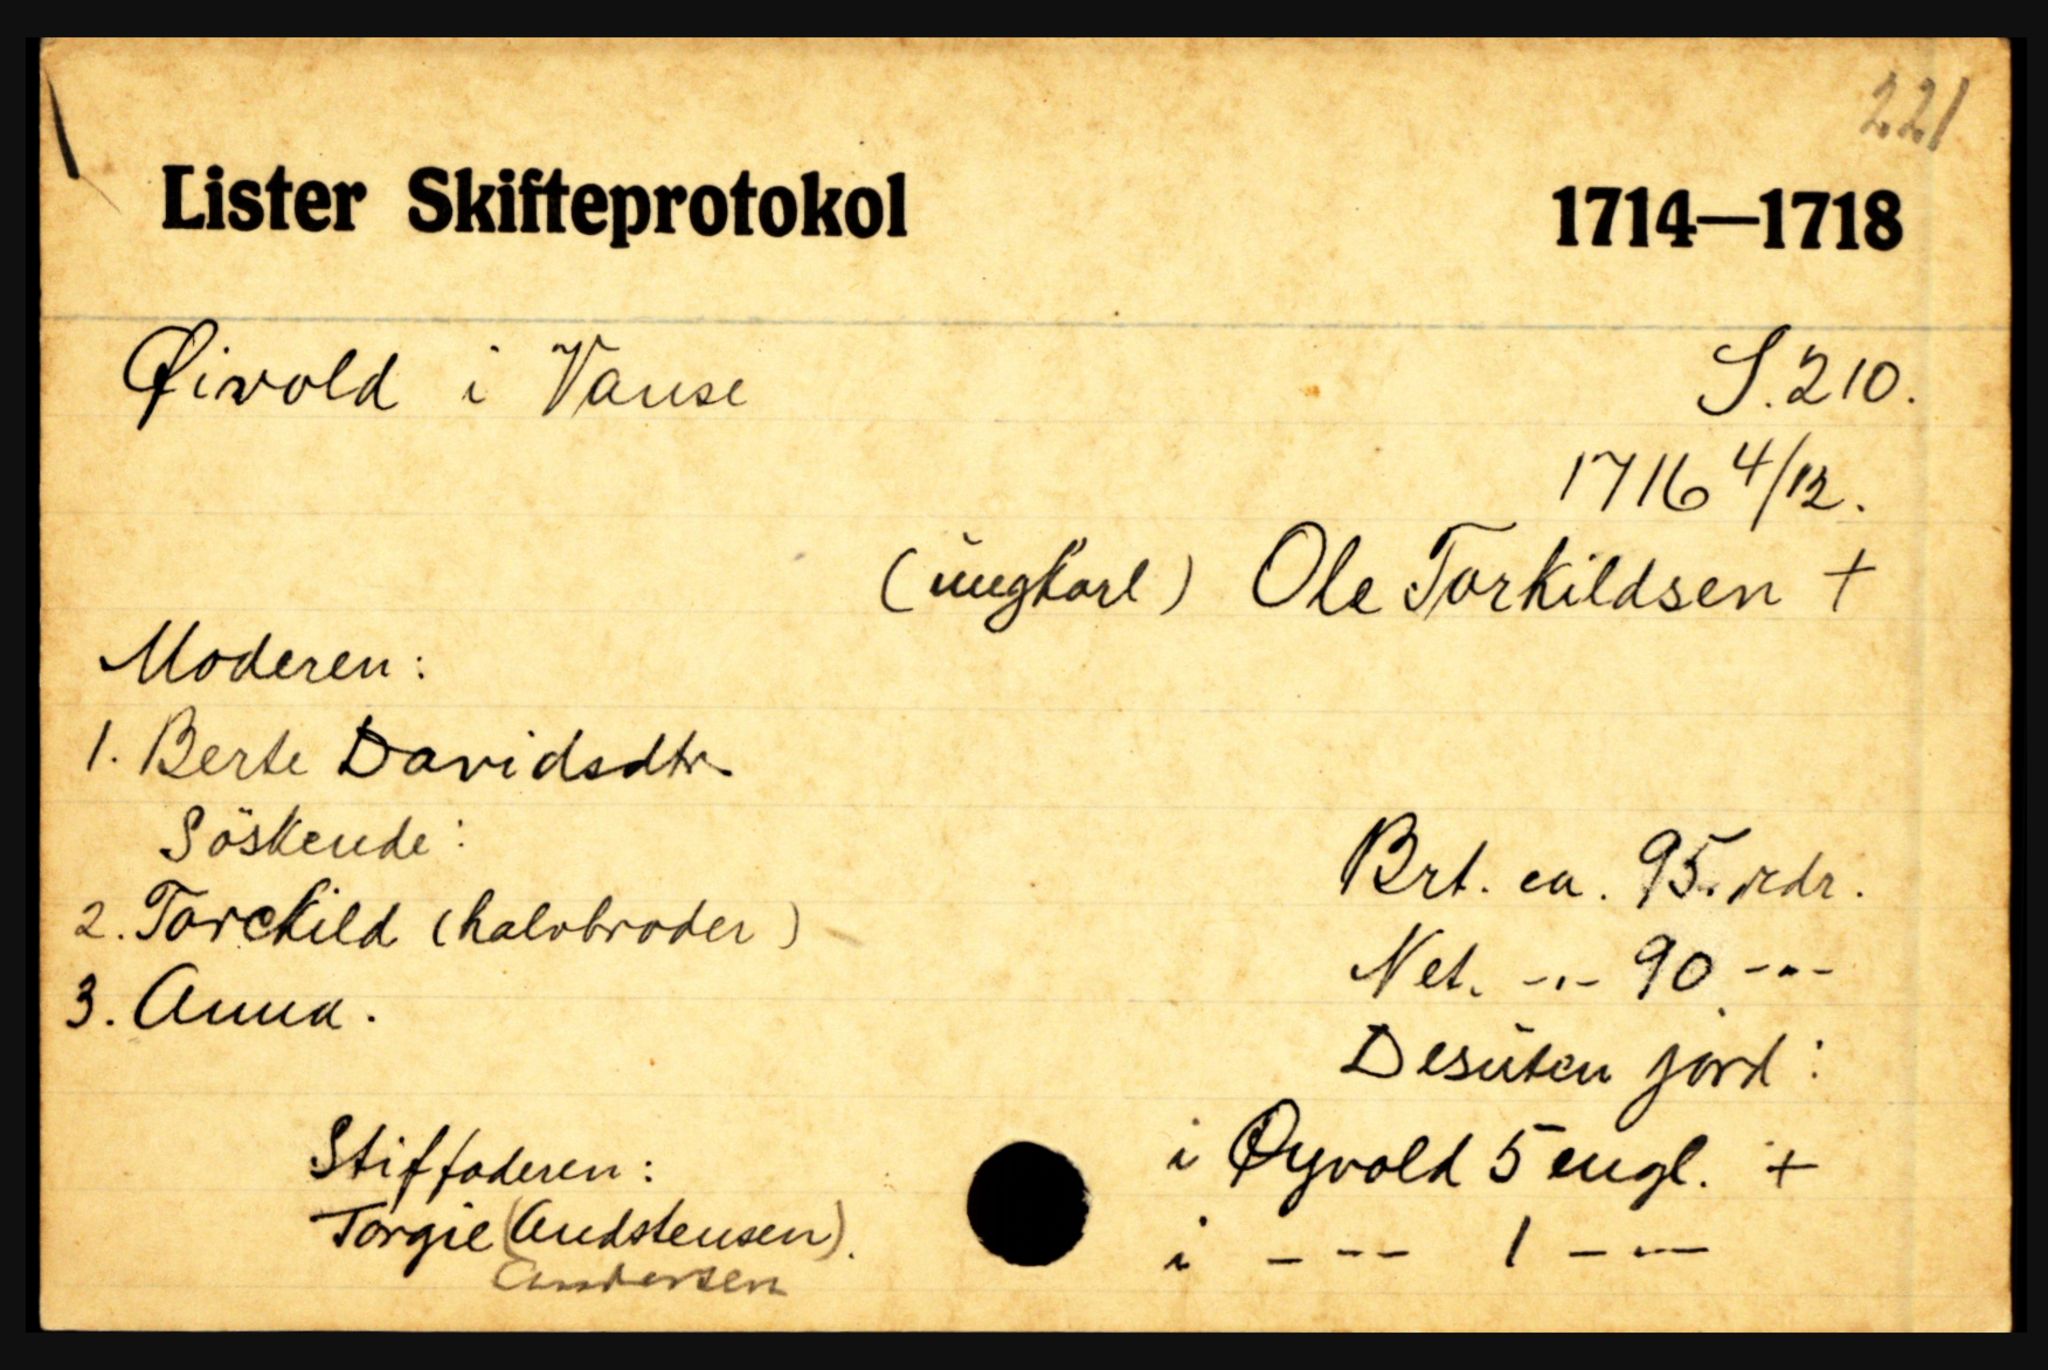 221
Lister Skifteprotokol 1714—1718
Øivold i Vanse S. 210.
1716 4/12.
(ungkarl) Ole Torkildsen +
Moderen:
1. Berte Davidsdtr.
Söskende:
2. Torckild (halvbroder)
3. Anna.
Brt. ca. 95. rdr.
Net. -"- 90 -"-
Desuten jord:
i Øyvold 5 engl. +
i - -- 1 - -- 
Stiffaderen:
Torgie (Andstensen).
Andersen